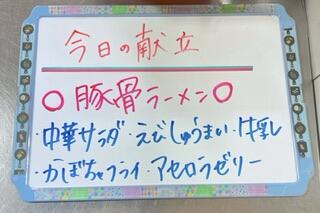 今日の献立
○豚骨ラーメン○
・中華サラダ・えびしゅうまい・牛乳
・かぼちゃフライ・アセロラゼリー